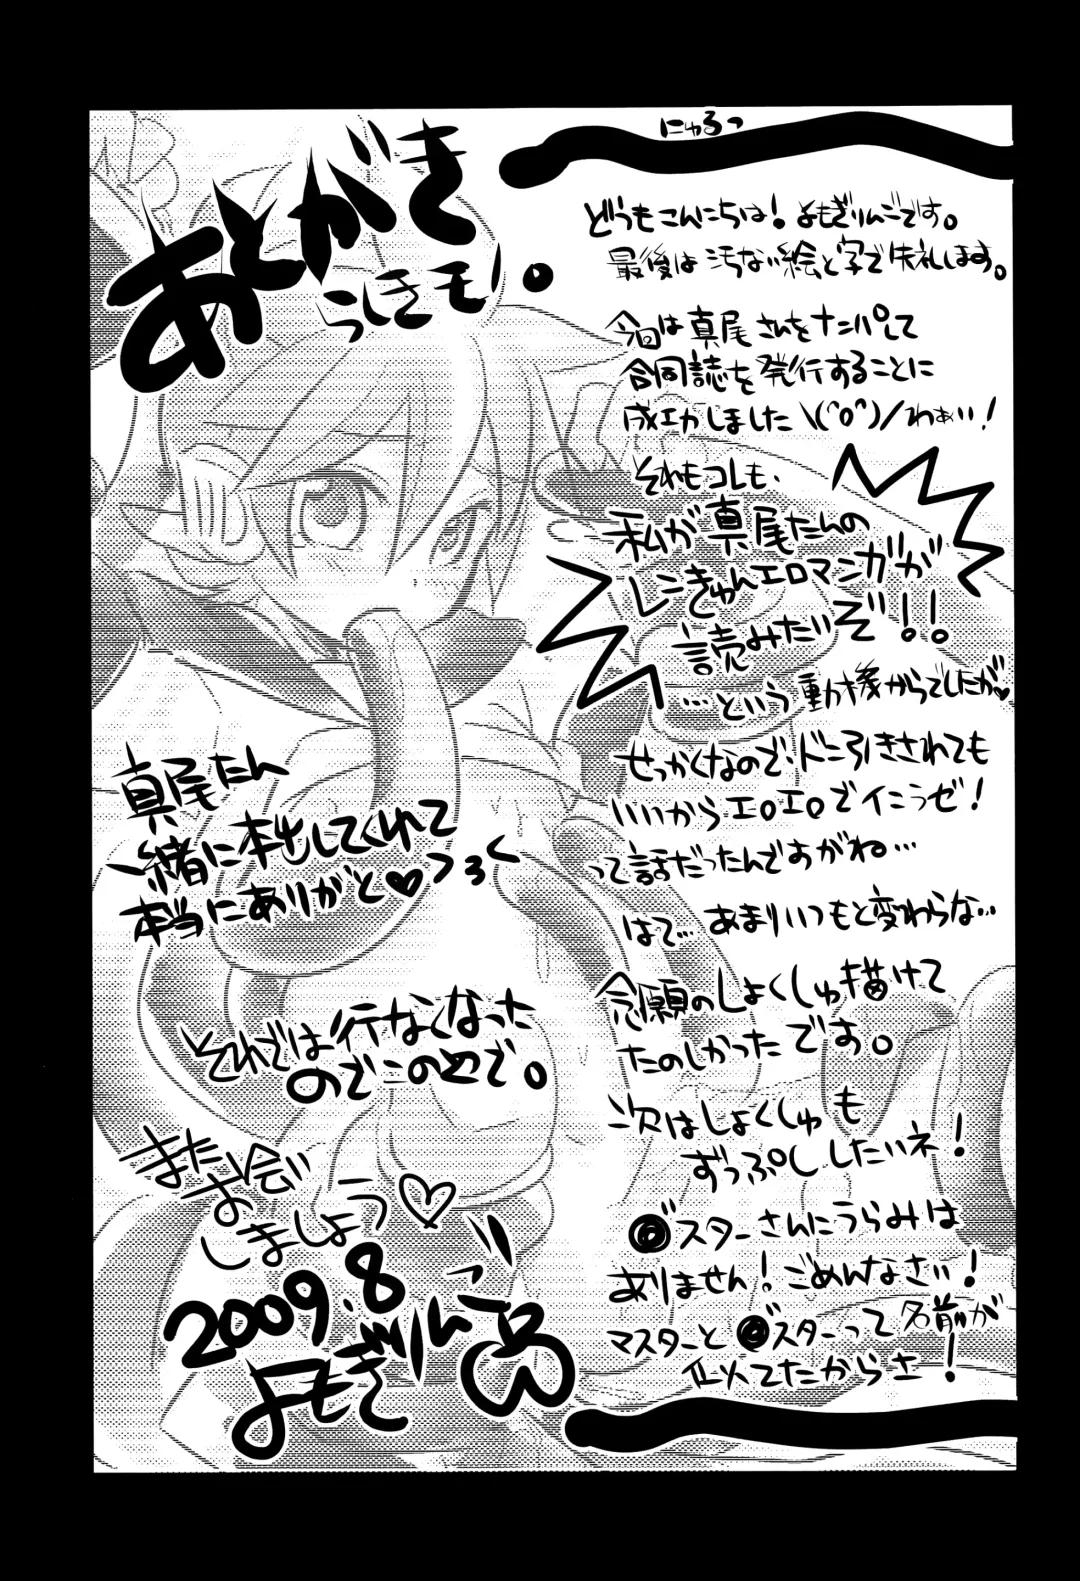 あとがき
らしきモノ。
にゅるっ
どうもこんにちは！よもぎりんごです。
最後は汚ない絵と字で失礼します。
今回は真尾さんをナンパして
合同誌を発行することに
成功しました\(^o^)/わぁい！
それもコレも、
私が真尾たんの
レンきゅんエロマンガが
読みたいぞ!!
…という動機からでしたが♥
せっかくなので、ドン引きされても
いいからエロエロでイこうぜ！
って話だったんですがね…
はて…あまりいつもと変わらな…
念願のしょくしゅ描けて
たのしかったです。
次はしょくしゅも
ずっぷししたいネ！
◎スターさんにうらみは
ありません！ごめんなさい！
マスターと◎スターって名前が
似てたからさ！
真尾たん
一緒に本出してくれて
本当にありがと♥
それでは行なくなった
のでこのへんで。
またお会い
しましょう♡
2009.8
よもぎりんご